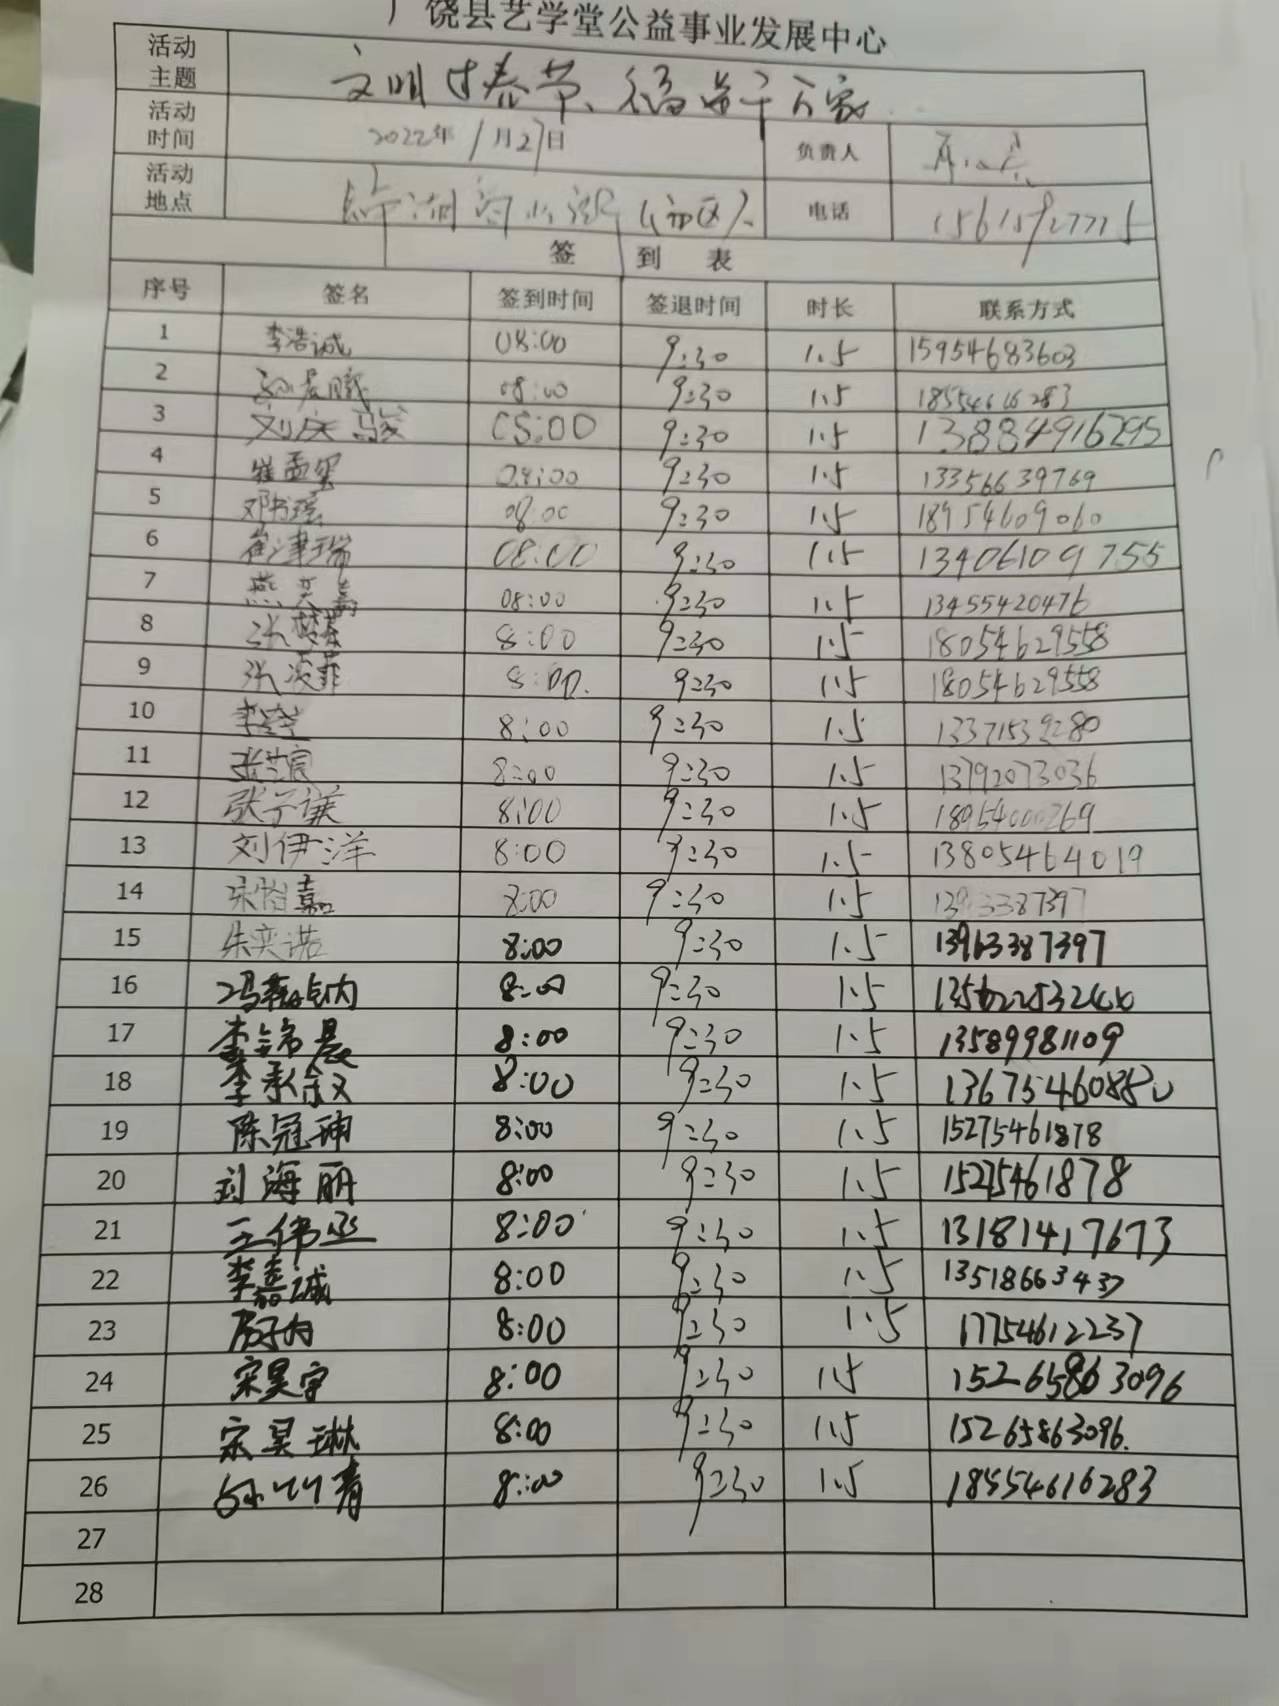 饶县艺学堂公益事业发展中心
活动主题 文明过春节、福送千万家
活动时间 2022年1月27日 负责人
活动地点 电话 15615927775
签到表
序号 签名 签到时间 签退时间 时长 联系方式
1 李浩诚 08:00 9:30 1.5 15954683603
2 08:00 9:30 1.5 18554616283
3 刘庆骏 08:00 9:30 1.5 13884916295
4 崔孟玺 08:00 9:30 1.5 13356639769
5 邓书瑶 08:00 9:30 1.5 18954609060
6 崔津瑞 08:00 9:30 1.5 13406109755
7 燕奕 08:00 9:30 1.5 13455420476
8 张梦 8:00 9:30 1.5 18054629558
9 张凌菲 8:00 9:30 1.5 18054629558
10 李 8:00 9:30 1.5 13371539280
11 张艺宸 8:00 9:30 1.5 13792073036
12 张子谦 8:00 9:30 1.5 18954000269
13 刘伊洋 8:00 9:30 1.5 13805464019
14 怡嘉 8:00 9:30 1.5
15 朱奕诺 8:00 9:30 1.5 13963387397
16 冯 8:00 9:30 1.5
17 李锦晨 8:00 9:30 1.5 13589981109
18 李承叙 8:00 9:30 1.5
19 陈冠珅 8:00 9:30 1.5 15275461878
20 刘海丽 8:00 9:30 1.5 15275461878
21 王伟丞 8:00 9:30 1.5 13181417673
22 李嘉诚 8:00 9:30 1.5 13518663437
23 8:00 9:30 1.5 17754612237
24 宋昊宇 8:00 9:30 1.5 15265863096
25 宋昊琳 8:00 9:30 1.5 15265863096.
26 8:00 9:30 1.5 18554616283
27
28